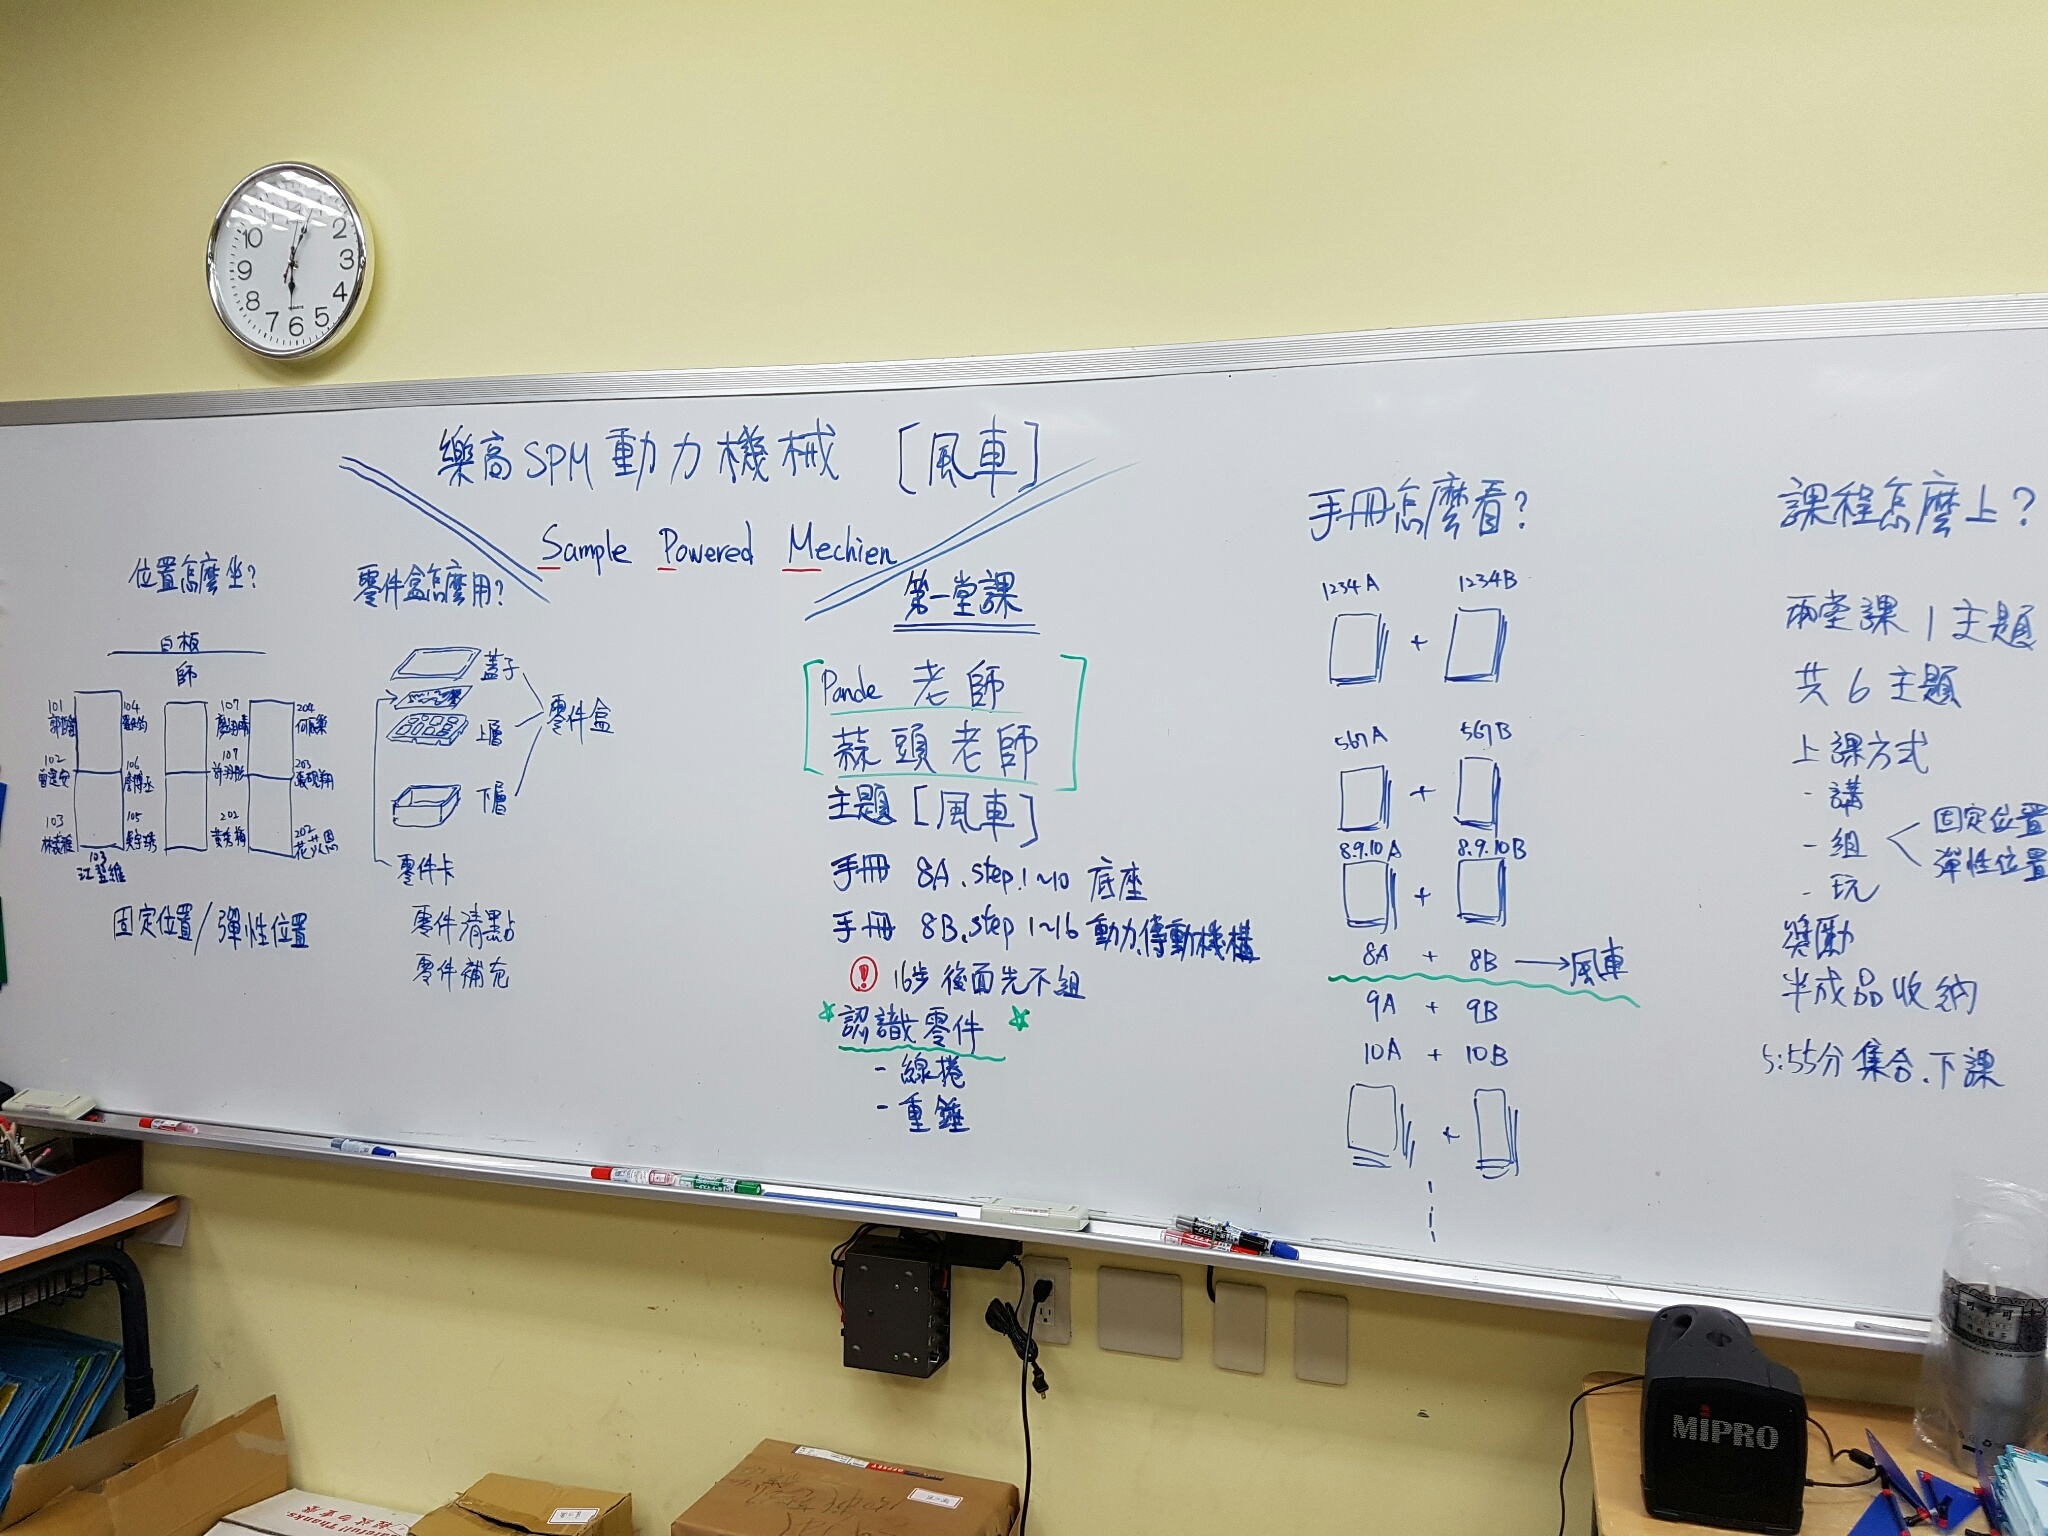 樂高SPM動力機械 [風車]
Sample Powered Mechien
位置怎麼坐?
白板
師
101
104
107
204
102
106
109
203
曾
許羽彤
103
105
202
202
黃秀梅
103
固定位置/彈性位置
零件盒怎麼用?
蓋子
上層
零件盒
下層
零件卡
零件清點
零件補充
第一堂課
Pande 老師
蒜頭老師
主題 [風車]
手冊 8A.step.1~10 底座
手冊 8B.step 1~16 動力.傳動機構
! 16步後面先不組
認識零件
- 線捲
- 重錘
手冊怎麼看?
1234A 1234B
+
567A 567B
+
8.9.10A 8.9.10B
+
8A + 8B → 風車
9A + 9B
10A + 10B
+
課程怎麼上?
兩堂課1主題
共6主題
上課方式
- 講
- 組
固定位置
彈性位置
- 玩
獎勵
半成品收納
5:55分集合.下課
10
2
9
3
8
4
7
6
5
MIPRO
Thanks.